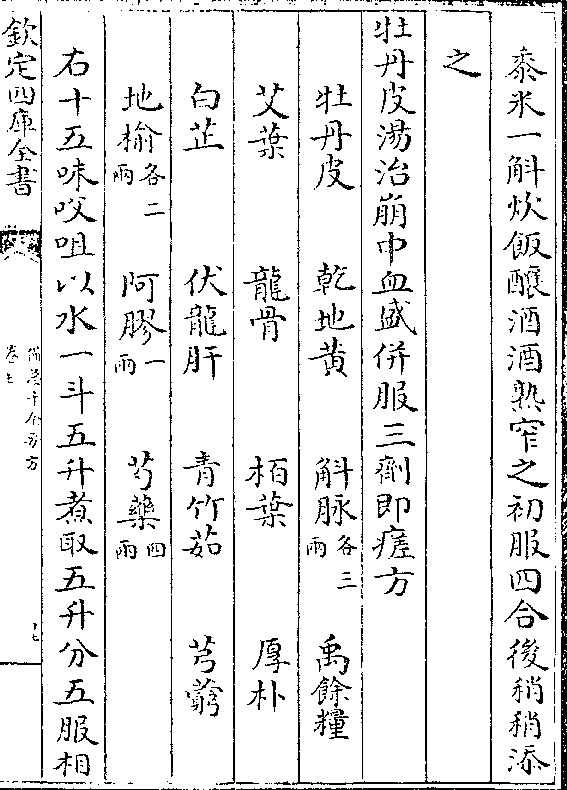 黍米一斛炊飯釀酒酒熟窄之初服四合後稍稍添
之
牡丹皮湯治崩中血盛併服三劑即瘥方
牡丹皮　乾地黃　斛脉各三兩　禹餘糧
艾葉　龍骨　栢葉　厚朴
白芷　伏龍肝　青竹茹　芎藭
地榆各二兩　阿膠一兩　芍藥四兩
右十五味㕮咀以水一斗五升煮取五升分五服相
欽定四庫全書
備急千金要方